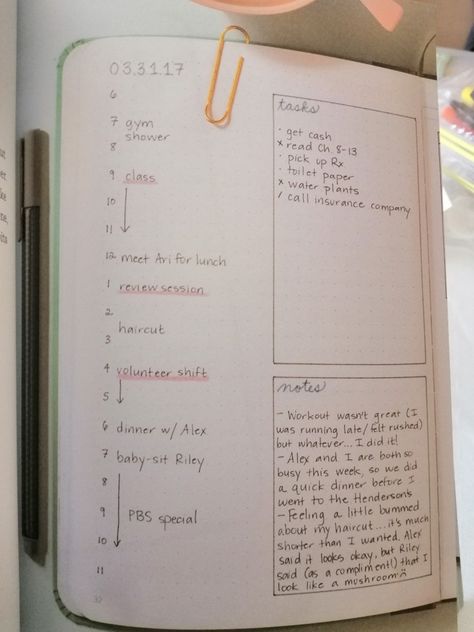 03.31.17
6
7 gym
shower
8
9 class
10
11
12 meet Ari for lunch
1 review session
2
haircut
3
4 volunteer shift
5
6 dinner w/ Alex
7 baby-sit Riley
8
9 PBS special
10
11
tasks
· get cash
× read Ch. 8-13
· pick up Rx
· toilet paper
× water plants
/ call insurance company
notes
- Workout wasn't great (I
was running late/felt rushed)
but whatever... I did it!
- Alex and I are both so
busy this week, so we did
a quick dinner before I
went to the Henderson's
- Feeling a little bummed
about my haircut.... it's much
shorter than I wanted. Alex
said it looks okay, but Riley
said (as a compliment!) that I
look like a mushroom